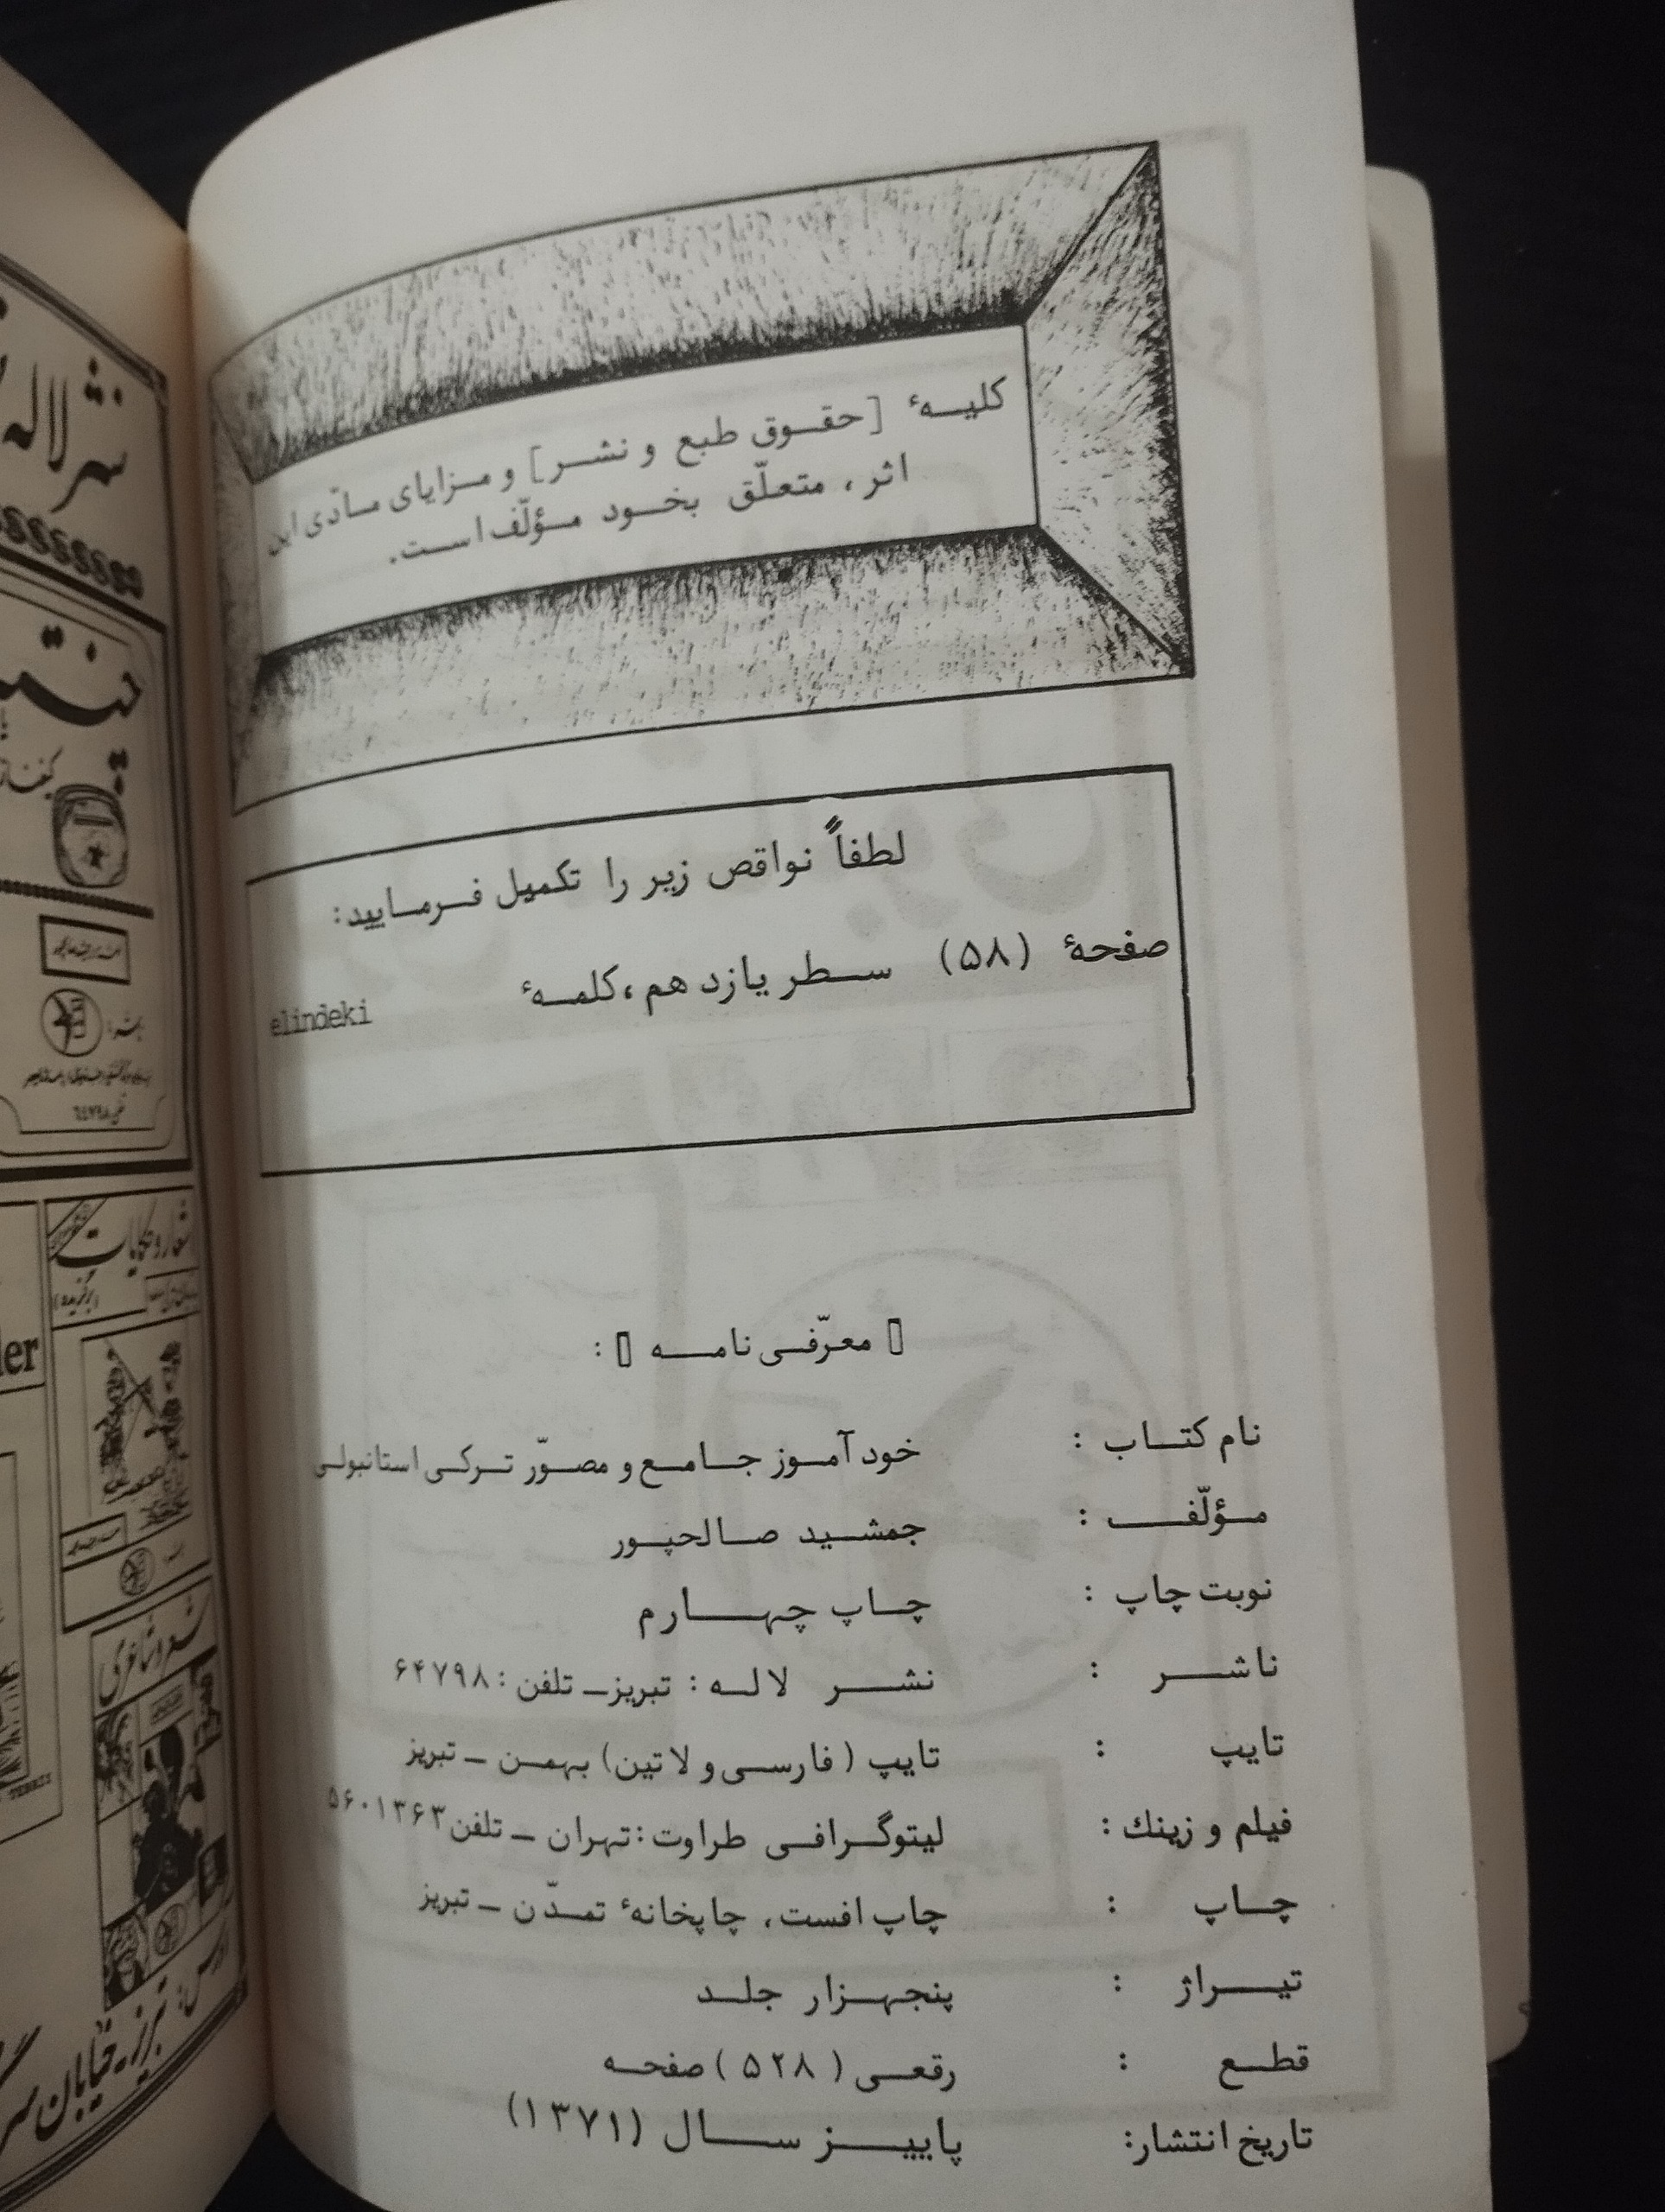 کلیهٔ [حقوق طبع و نشر] و مزایای مادّی این
اثر، متعلّق بخود مؤلّف است.
لطفاً نواقص زیر را تکمیل فرمایید:
صفحهٔ (۵۸) سطر یازدهم، کلمهٔ elindeki
▯ معرّفی نامه ▯ :
نام کتاب : خودآموز جامع و مصوّر ترکی استانبولی
مؤلّف : جمشید صالحپور
نوبت چاپ : چاپ چهارم
ناشر : نشر لاله : تبریز_ تلفن : ۶۴۷۹۸
تایپ : تایپ (فارسی و لاتین) بهمن _ تبریز
فیلم و زینك : لیتوگرافی طراوت : تهران _ تلفن ۵۶۰۱۳۶۳
چاپ : چاپ افست، چاپخانهٔ تمدّن _ تبریز
تیراژ : پنجهزار جلد
قطع : رقعی (۵۲۸) صفحه
تاریخ انتشار: پاییز سال (۱۳۷۱)
نشر لاله